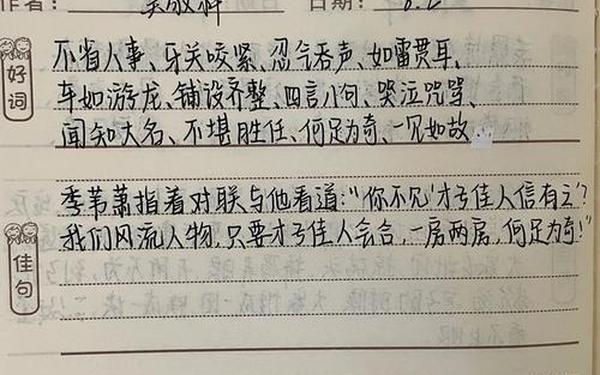 作者： 吴敬梓 日期： 8.2
好词
不省人事、牙关咬紧、忍气吞声、如雷贯耳、
车如游龙、铺设齐整、四言小句、哭泣咒骂、
闻知大名、不堪胜任、何足为奇、一见如故
季苇萧指着对联与他看道：“你不见‘才子佳人信有之’？
佳句
我们风流人物，只要才子佳人会合，一房两房，何足为奇！”